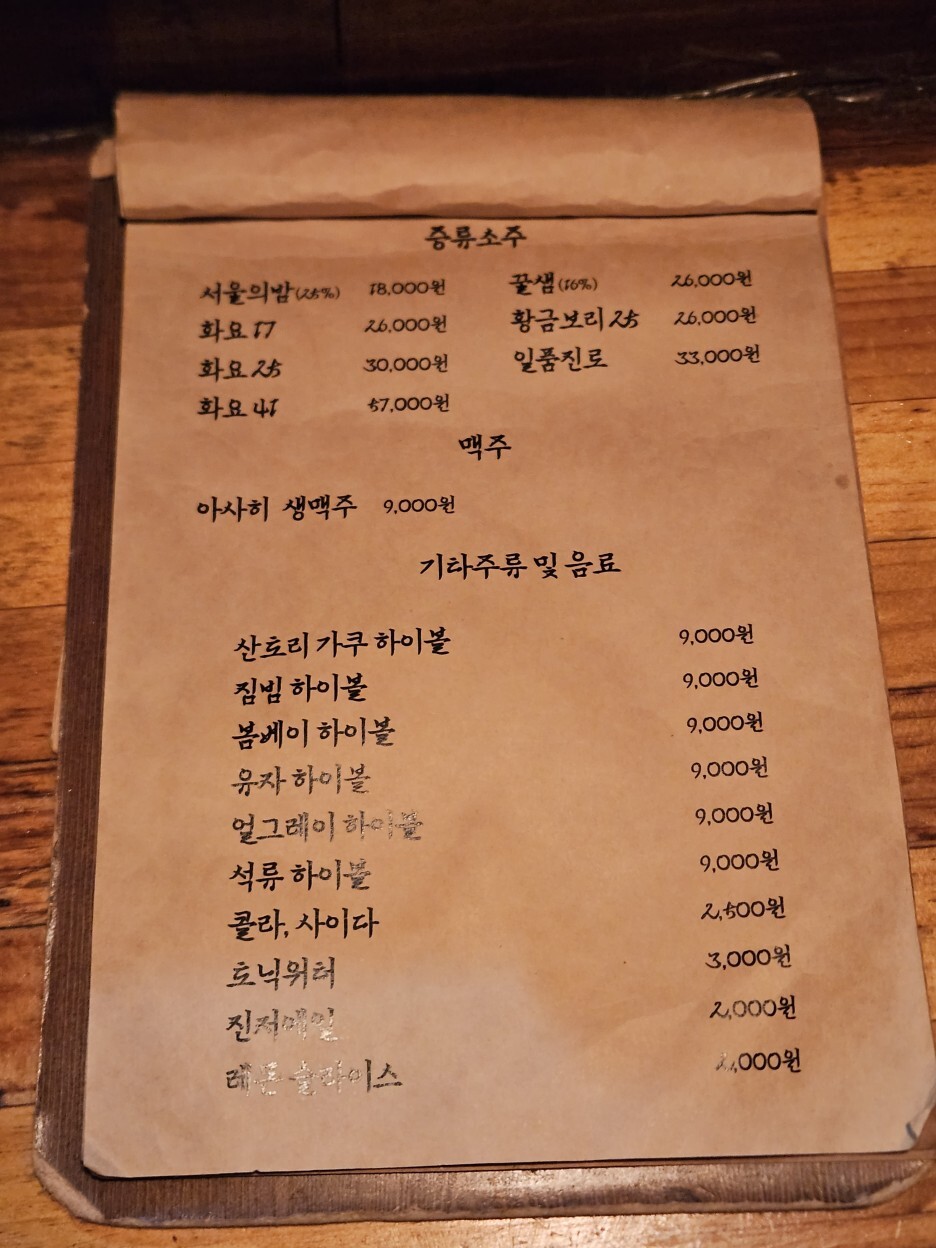 증류소주
서울의밤(25%) 18,000원 꿀샘(16%) 26,000원
화요17 26,000원 황금보리25 26,000원
화요25 30,000원 일품진로 33,000원
화요41 57,000원
맥주
아사히 생맥주 9,000원
기타주류 및 음료
산토리 가쿠 하이볼 9,000원
짐빔 하이볼 9,000원
봄베이 하이볼 9,000원
유자 하이볼 9,000원
얼그레이 하이볼 9,000원
석류 하이볼 9,000원
콜라, 사이다 2,500원
토닉워터 3,000원
진저에일 2,000원
레몬 슬라이스